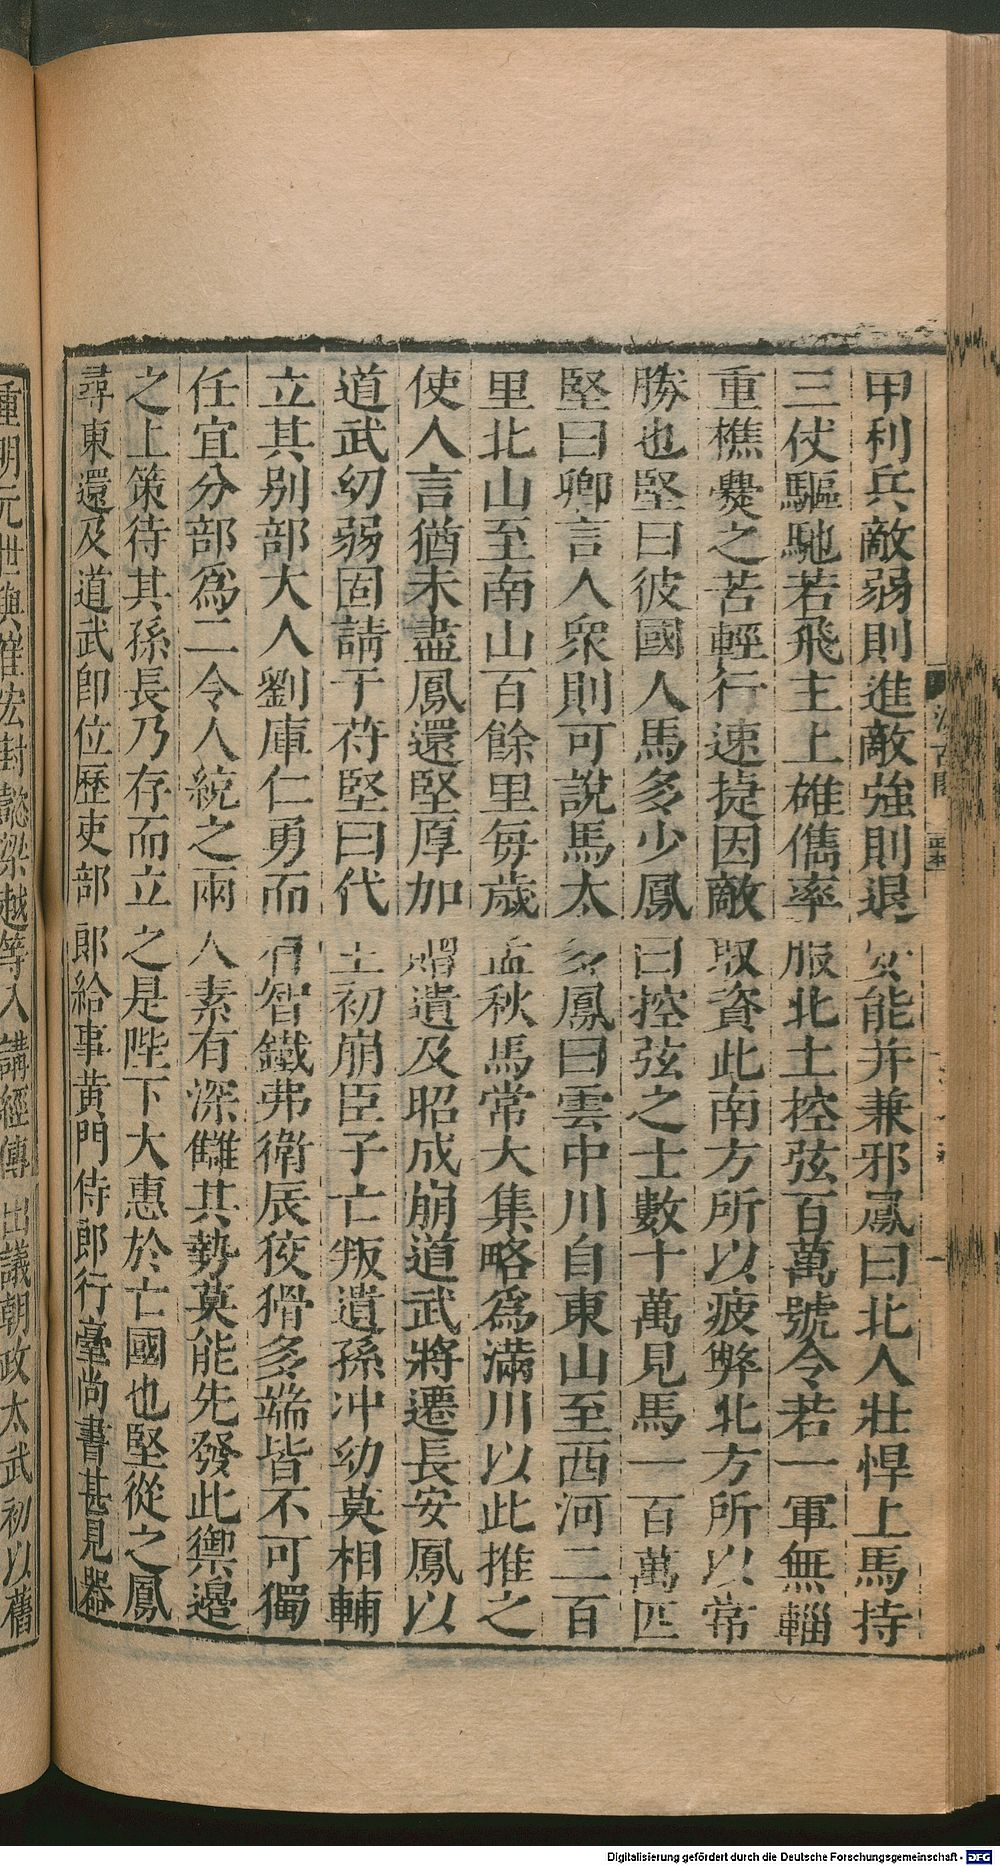 甲利兵敵弱則進敵強則退安能并兼邪鳳曰北人壯悍上馬持
三仗驅馳若飛主上雄儁率服北土控弦百萬號令若一軍無輜
重樵爨之苦輕行速捷因敵取資此南方所以疲弊北方所以常
勝也堅曰彼國人馬多少鳳曰控弦之士數十萬見馬一百萬匹
堅曰卿言人衆則可說馬太多鳳曰雲中川自東山至西河二百
里北山至南山百餘里每歲孟秋馬常大集略爲滿川以此推之
使人言猶未盡鳳還堅厚加贈遺及昭成崩道武將遷長安鳳以
道武幼弱固請于苻堅曰代主初崩臣子亡叛遺孫冲幼莫相輔
立其别部大人劉庫仁勇而有智鐵弗衛辰狡猾多端皆不可獨
任宜分部爲二令人統之兩人素有深讎其勢莫能先發此禦邊
之上策待其孫長乃存而立之是陛下大惠於亡國也堅從之鳳
尋東還及道武即位歷吏部郎給事黃門侍郎行臺尚書甚見器
重明元世與崔宏封懿梁越等入講經傳出議朝政太武初以舊
Digitalisierung gefördert durch die Deutsche Forschungsgemeinschaft - DFG